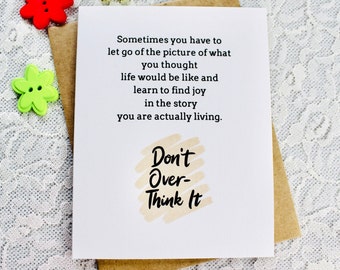 Sometimes you have to
let go of the picture of what
you thought
life would be like and
learn to find joy
in the story
you are actually living.
Don't
Over-
Think It